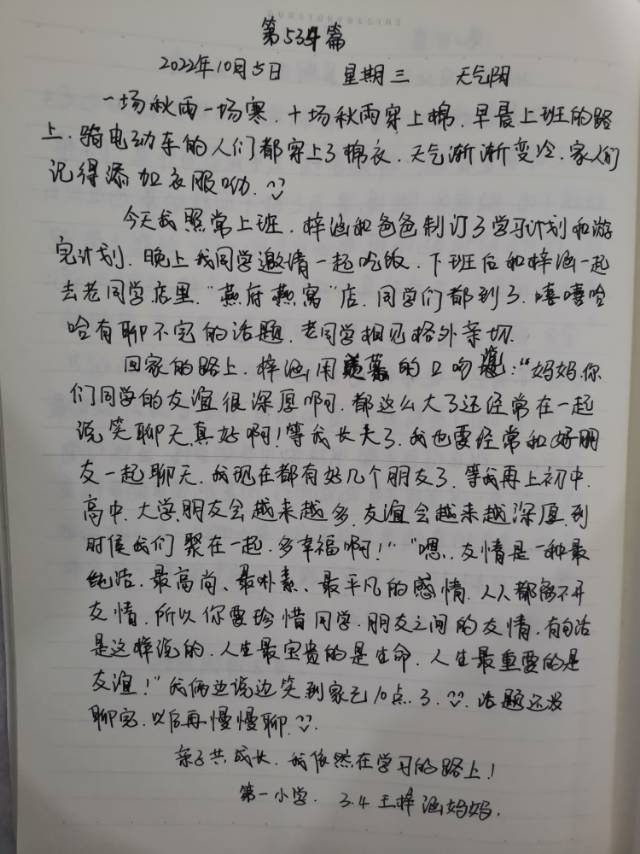 第534篇
2022年10月5日 星期三 天气阴
一场秋雨一场寒.十场秋雨穿上棉.早晨上班的路
上.骑电动车的人们都穿上了棉衣.天气渐渐变冷.家人们
记得添加衣服呦.
今天我照常上班.梓涵和爸爸制订了学习计划和游
完计划.晚上我同学邀请一起吃饭.下班后和梓涵一起
去老同学店里."燕府燕窝"店.同学们都到了.嘻嘻哈
哈有聊不完的话题.老同学相见格外亲切.
回家的路上.梓涵用羡慕的口吻说:"妈妈.你
们同学的友谊很深厚啊.都这么大了还经常在一起
说笑聊天.真好啊!等我长大了.我也要经常和好朋
友一起聊天.我现在都有好几个朋友了.等我再上初中.
高中.大学.朋友会越来越多.友谊会越来越深厚.到
时候我们聚在一起.多幸福啊!""嗯..友情是一种最
纯洁.最高尚、最朴素、最平凡的感情.人人都离不开
友情.所以你要珍惜同学.朋友之间的友情.有句话
是这样说的.人生最宝贵的是生命.人生最重要的是
友谊!"我俩边说边笑到家已10点..了.话题还没
聊完.以后再慢慢聊.
亲子共成长.我依然在学习的路上!
第一小学. 3.4 王梓涵妈妈.